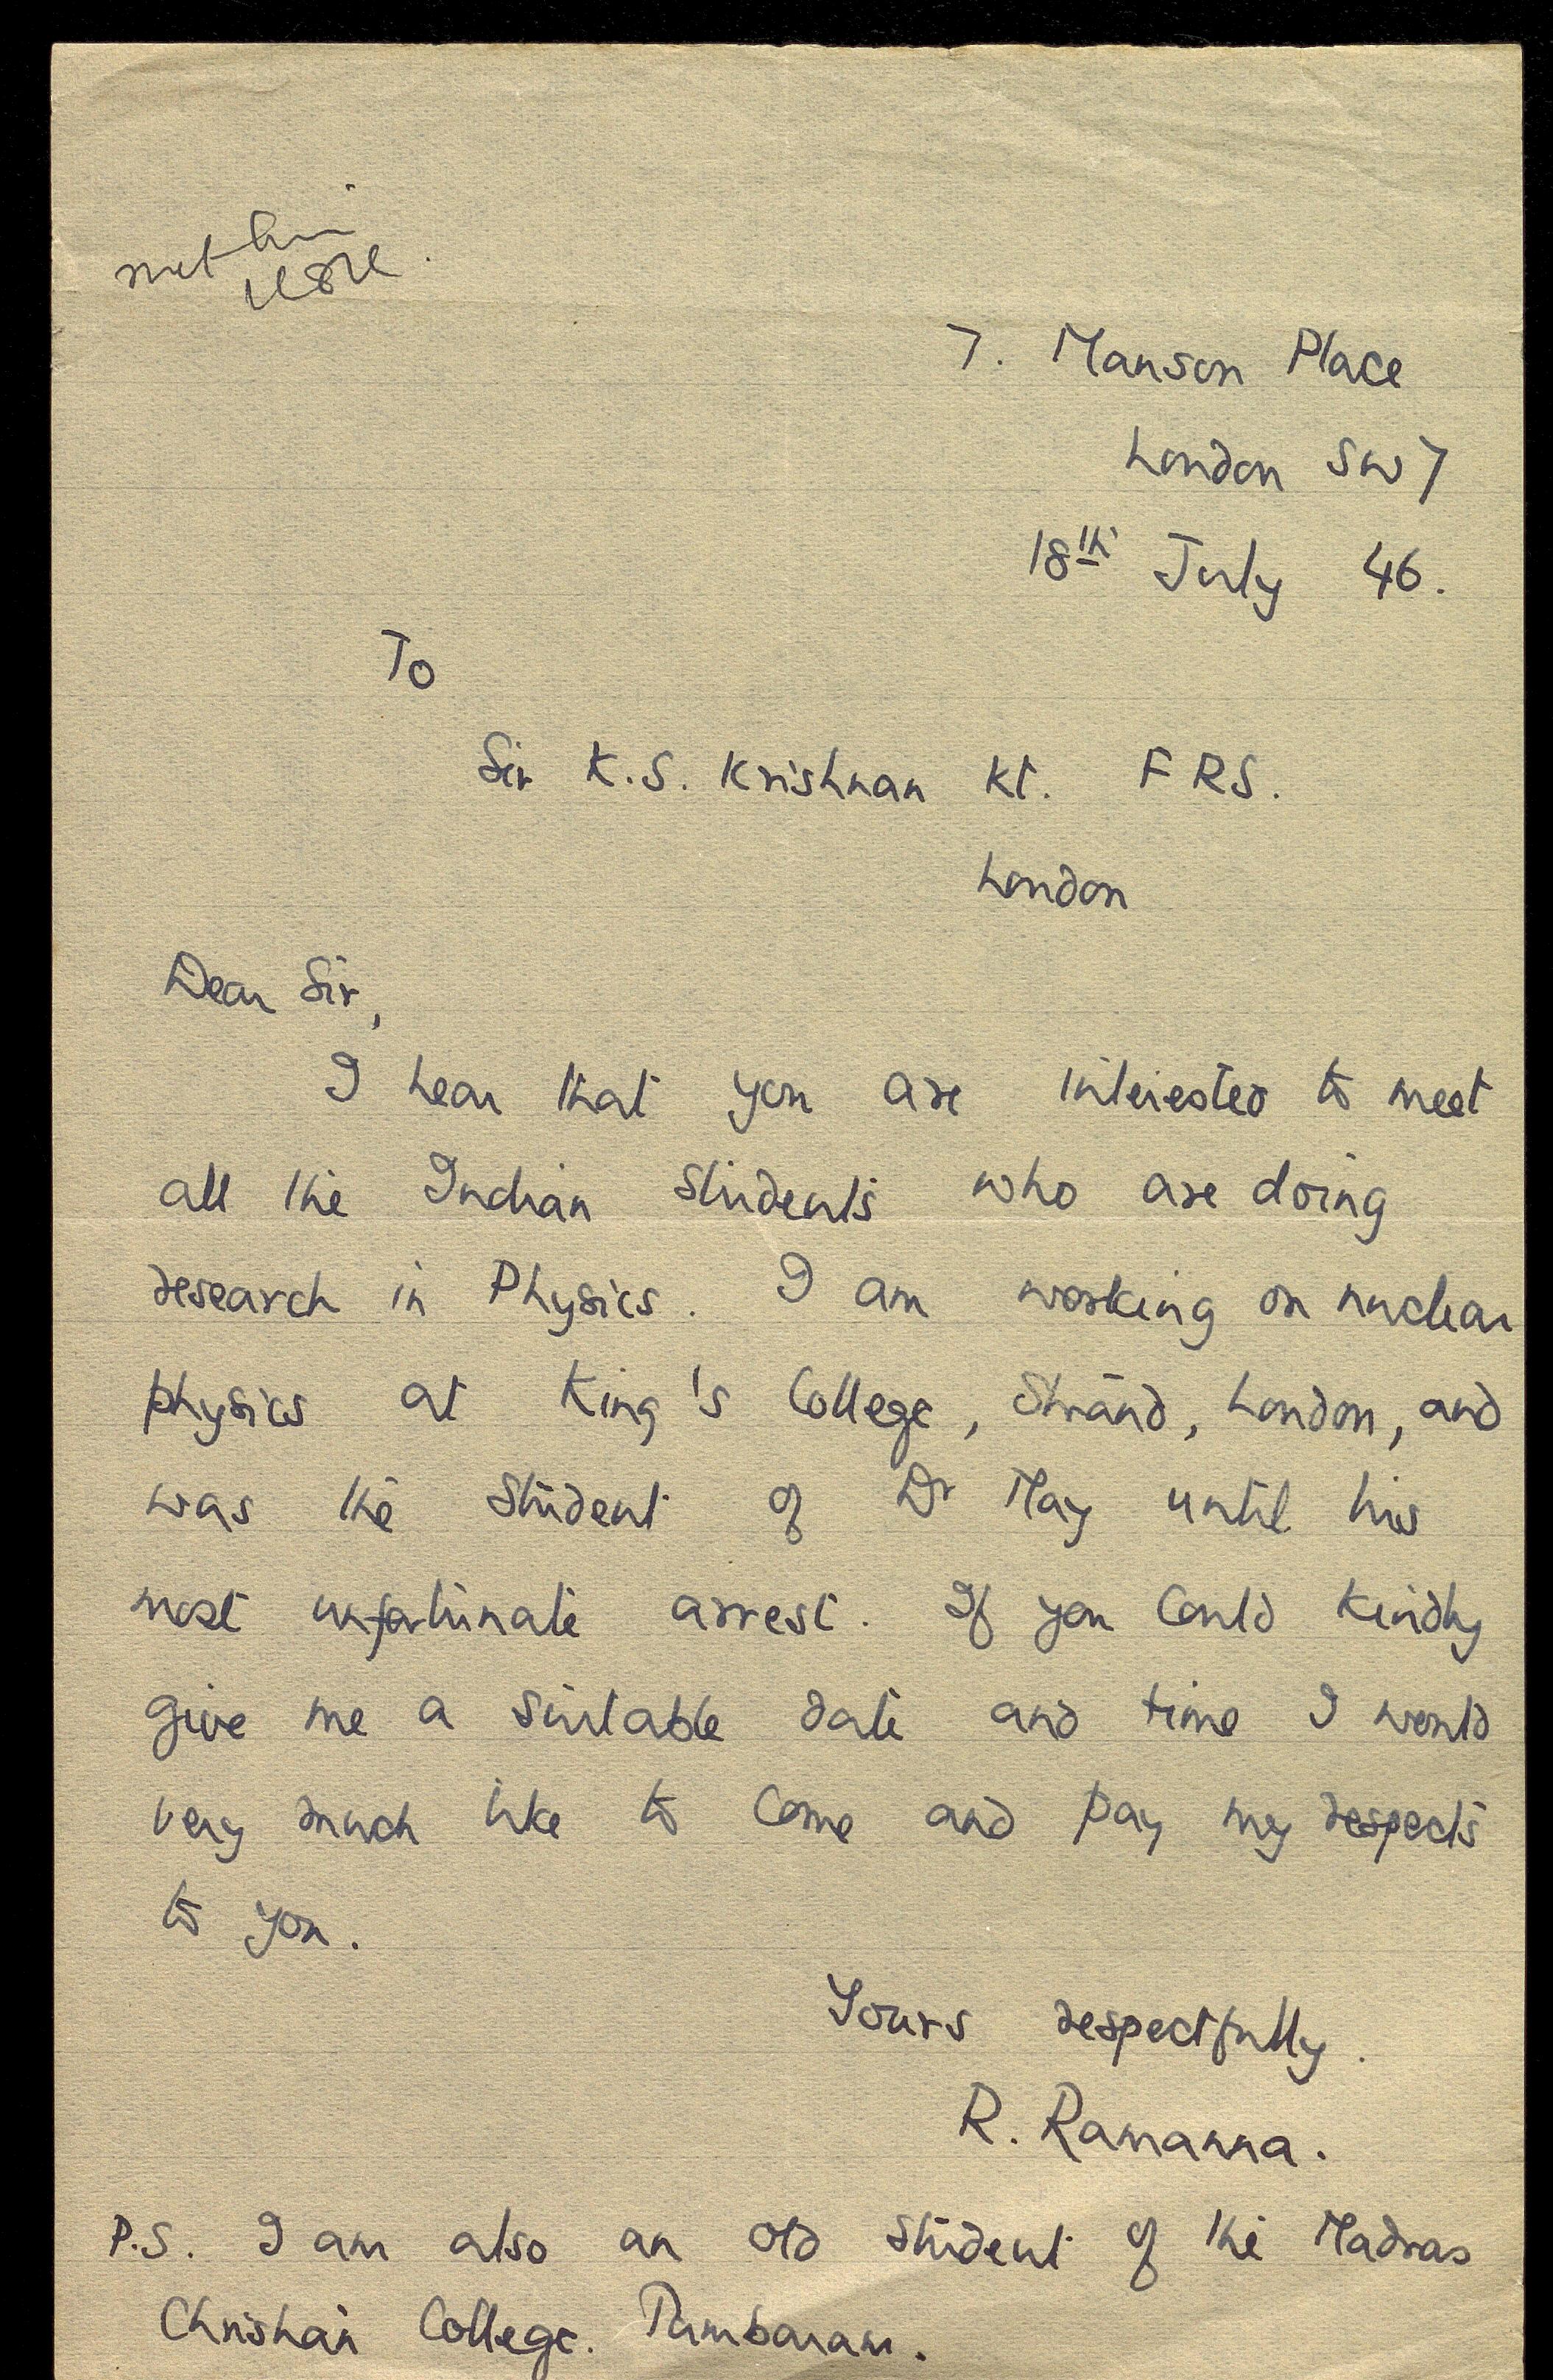 met him
here.
7. Manson Place
London SW7
18th July 46.
To
Sir K.S. Krishnan Kt. FRS.
London
Dear Sir,
I hear that you are interested to meet
all the Indian students who are doing
research in Physics. I am working on nuclear
physics at King's College, Strand, London, and
was the student of Dr May until his
most unfortunate arrest. If you could kindly
give me a suitable date and time I would
very much like to come and pay my respects
to you.
Yours respectfully.
R. Ramanna.
P.S. I am also an old student of the Madras
Christian College. Tambaram.